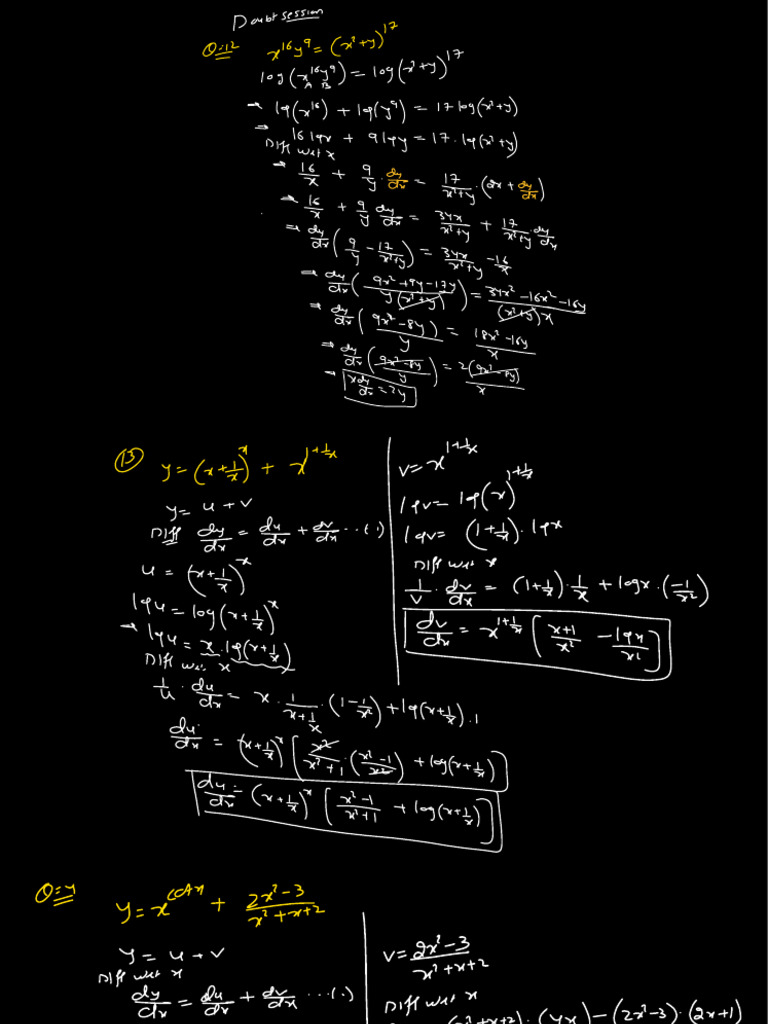 Doubt session
Q:12 x^16 y^9 = (x²+y)^17
log(x^16 y^9) = log(x²+y)^17
A B
→ log(x^16) + log(y^9) = 17 log(x²+y)
→ 16 logx + 9 logy = 17. log(x²+y)
Diff wrt x
→ 16/x + 9/y · dy/dx = 17/(x²+y) · (2x + dy/dx)
→ 16/x + 9/y dy/dx = 34x/(x²+y) + 17/(x²+y) · dy/dx
→ dy/dx (9/y - 17/(x²+y)) = 34x/(x²+y) - 16/x
→ dy/dx ((9x²+9y-17y)/(y(x²+y))) = (34x²-16x²-16y)/((x²+y)x)
→ dy/dx ((9x²-8y)/y) = (18x²-16y)/x
→ dy/dx ((9x²-8y)/y) = 2(9x²-8y)/x
→ x dy/dx = 2y
13 y = (x+1/x)^x + x^(1+1/x)
y = u + v
Diff dy/dx = du/dx + dv/dx ...(.)
u = (x+1/x)^x
log u = log(x+1/x)^x
→ log u = x . log(x+1/x)
Diff wrt x
1/u · du/dx = x · 1/(x+1/x) · (1-1/x²) + log(x+1/x) . 1
du/dx = (x+1/x)^x [x²/(x²+1) · ((x²-1)/x²) + log(x+1/x)]
du/dx = (x+1/x)^x [(x²-1)/(x²+1) + log(x+1/x)]
v = x^(1+1/x)
log v = log(x)^(1+1/x)
log v = (1+1/x) . log x
Diff wrt x
1/v · dv/dx = (1+1/x) · 1/x + log x · (-1/x²)
dv/dx = x^(1+1/x) [(x+1)/x² - log x/x²]
Q:4 y = x^cotx + (2x²-3)/(x²+x+2)
y = u + v
Diff wrt x
dy/dx = du/dx + dv/dx ...(.)
v = (2x²-3)/(x²+x+2)
Diff wrt x
(x²+x+2) · (4x) - (2x²-3) · (2x+1)